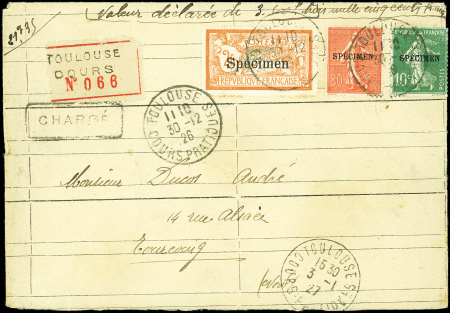 Valeur déclarée de 3. mille cinq cents francs
TOULOUSE
DOURS
N° 066
CHARGÉ
Specimen
REPUBLIQUE FRANCAISE
SPECIMEN
80
SPECIMEN
10
POSTES
11 10
30-12
TOULOUSE
11 10
30-12
26
COURS PRATIQUES
Monsieur Ducos André
14 rue Alsace
Tourcoing
(Nord)
TOULOUSE
15 30
3-1
27
COURS PRATIQUES